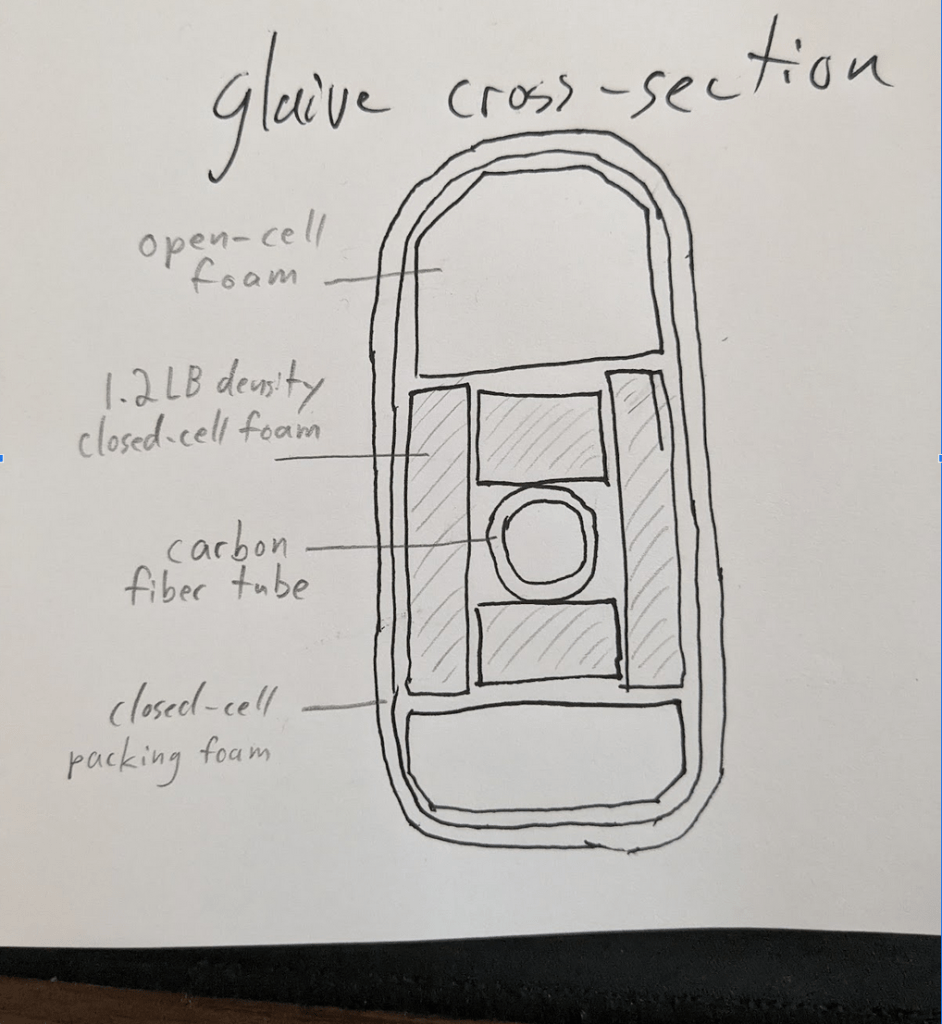 glaive cross-section
open-cell
foam
1.2 LB density
closed-cell foam
carbon
fiber tube
closed-cell
packing foam